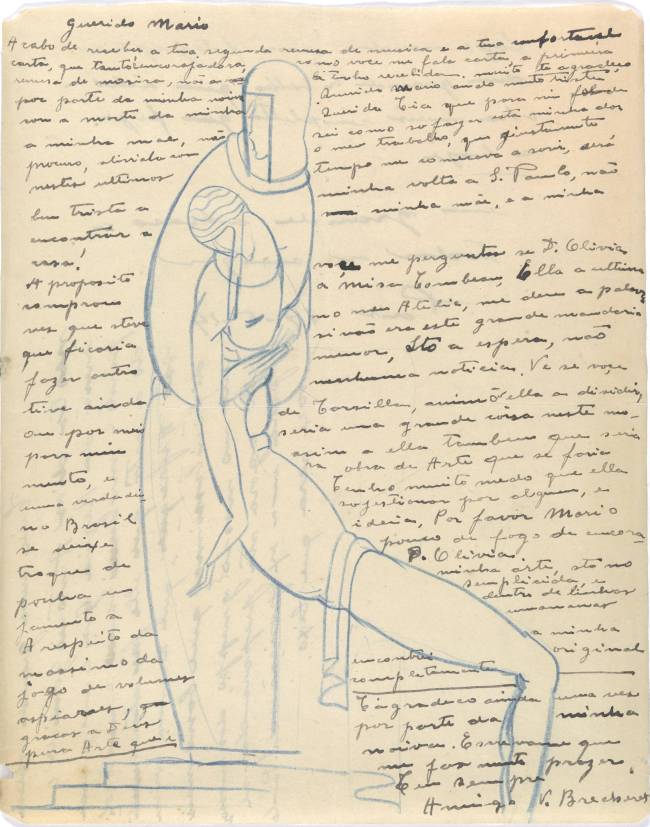 Querido Mario
Acabo de receber a tua segunda remesa de musica e a tua confortavel
carta, que tanto encorajadora, como voce me fala carta, a primeira
remesa de mosica, não a tinha recebidam. muito te agradeco
por parte da minha noiva Querido Mario ando muito triste,
com a morte da minha Querida Tica que para mi
a minha mãe, não sei como so fazer esta minha dor
procuro, alivialo com o meu trabalho, que justamente
nestes ultimos tempo me comecava a sorir, será
bem triste a minha volta a S. Paulo, não
encontrar a minha mãe, e a minha
casa!
A proposito voce me pergunta se D. Olivia
comprou a Misa Tombeau, Ella a ultima
ves que steve no meu Atelie, me deu a palavra
que ficaria si não era este grande mandaria
fazer outro menor, Sto a espera, não
tive ainda nenhuma noticias. Ve se voçe
ou por meio de Tarsilla, animo ella a dividir,
para mim seria uma grande coisa neste mo-
mento, e asim a ella tambem que seria
uma verdadei- ra obra de Arte que se foria
no Brasil Tenho muito medo que ella
se deixe sogestionar por alguem, e
troque de ideia, Por favor Mario
ponha um pouco de fogo de encora-
jamento a D. Olivia.
A respeito da minha arte, sto no
massimo da semplicida, e
jogo de volumes dentro de linhas
aspiraes,
graças a Deus encontrei a minha
pura Arte que e completamente original
Tagradeco ainda uma ves
por parte da minha
noiva. Escrevame que
me fas muto prazer.
Teu sempre
Amigo V. Brecheret